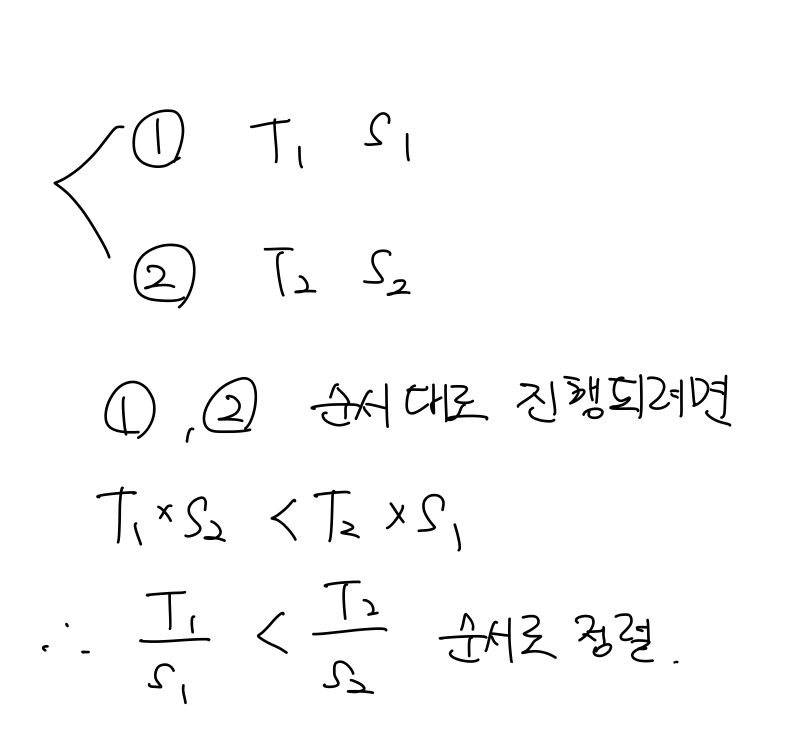 ① T₁ S₁
② T₂ S₂
①, ② 순서대로 진행되려면
T₁ × S₂ < T₂ × S₁
∴ T₁/S₁ < T₂/S₂ 순서로 정렬.